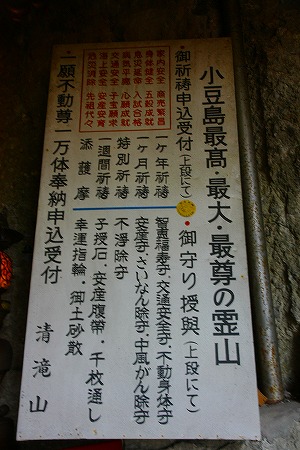 小豆島最高・最大・最尊の霊山
・御祈祷申込受付(上段にて)
家内安全 商売繁昌
身体健全 五穀成就
息災延命 入試合格
病気平癒 心願成就
交通安全 子宝願求
海上安全 安産安育
厄災消除 先祖代々
一ヶ年祈祷
一ヶ月祈祷
特別祈祷
一週間祈祷
添護摩
・御守り授與(上段にて)
智恵福寿守、交通安全守・不動身体守
安産守・さいなん除守・中風がん除守
不浄除守
子授石、安産腹帯・千枚通し
幸運指輪・御土砂散
・一願不動尊一万体奉納申込受付
清滝山